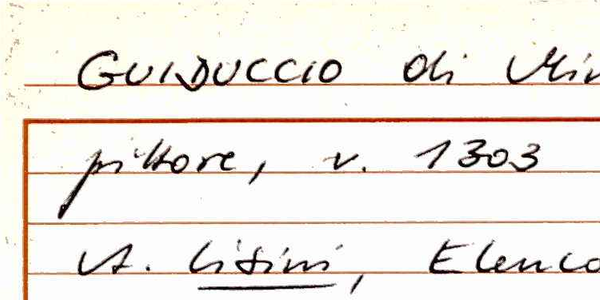 GUIDUCCIO di Min
pittore, v. 1303
A. Lisini, Elenco